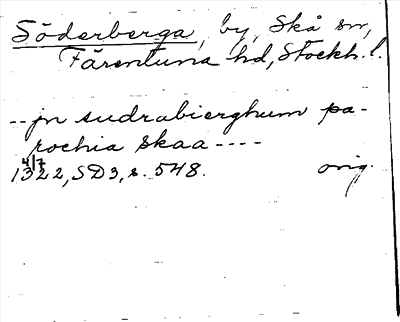 Söderberga, by, Skå sn,
Färentuna hd, Stockh. l.
-- jn sudrabierghum pa-
rochia skaa ----
4/7
1322, SD3, s. 548. orig.